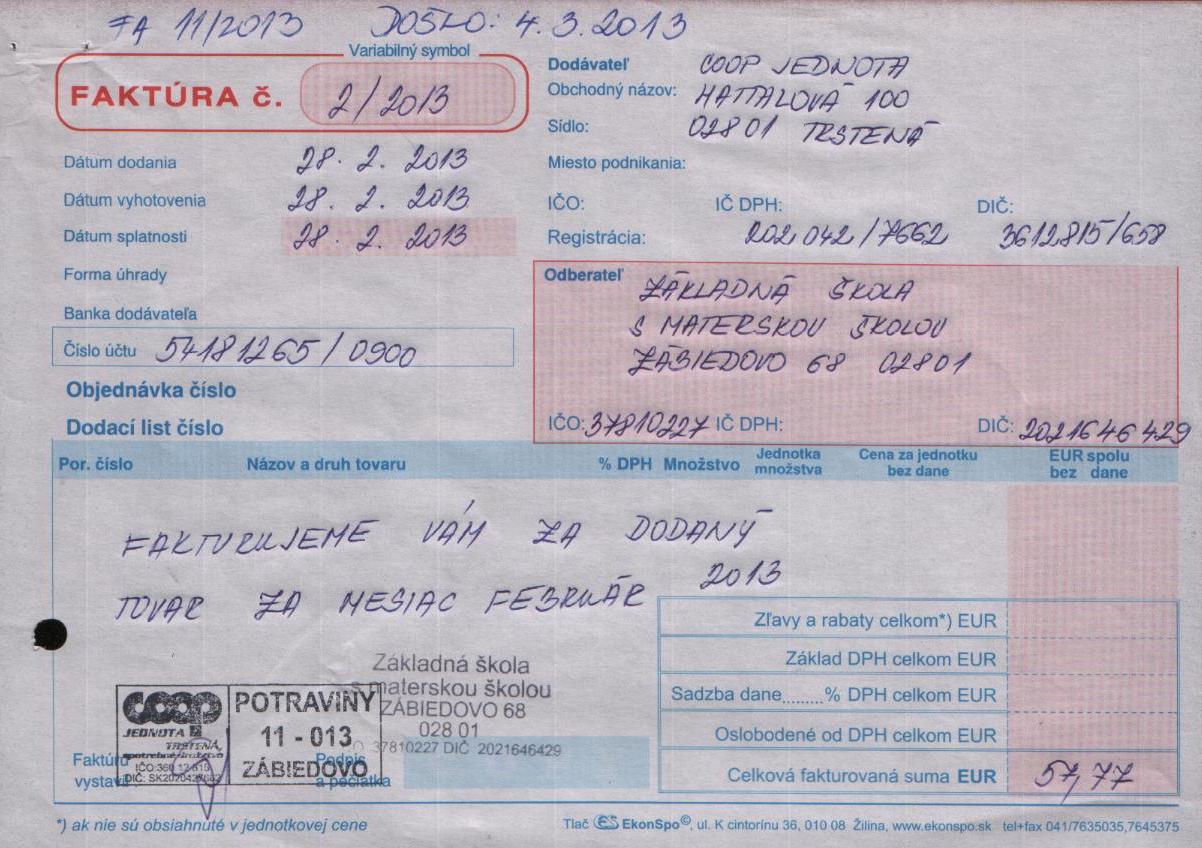 FA 11/2013 DOŠLO: 4.3.2013
Variabilný symbol
FAKTÚRA č. 2/2013
Dodávateľ COOP JEDNOTA
Obchodný názov: HATTALOVÁ 100
Sídlo: 02801 TRSTENÁ
Dátum dodania 28. 2. 2013
Miesto podnikania:
Dátum vyhotovenia 28. 2. 2013
IČO: IČ DPH: DIČ:
Dátum splatnosti 28. 2. 2013
Registrácia: 202042/7662 3612815/658
Forma úhrady
Banka dodávateľa
Číslo účtu 54181265/0900
Objednávka číslo
Dodací list číslo
Odberateľ ZÁKLADNÁ ŠKOLA
S MATERSKOU ŠKOLOU
ZÁBIEDOVO 68 02801
IČO: 37810227 IČ DPH: DIČ: 2021646429
Por. číslo Názov a druh tovaru % DPH Množstvo Jednotka množstva Cena za jednotku bez dane EUR spolu bez dane
FAKTURUJEME VÁM ZA DODANÝ
TOVAR ZA MESIAC FEBRUÁR 2013
Zľavy a rabaty celkom*) EUR
Základ DPH celkom EUR
Sadzba dane.......% DPH celkom EUR
Oslobodené od DPH celkom EUR
Celková fakturovaná suma EUR 57,77
Základná škola
s materskou školou
ZÁBIEDOVO 68
028 01
37810227 DIČ 2021646429
COOP
JEDNOTA
TRSTENÁ,
spotrebné družstvo
POTRAVINY
11 - 013
ZÁBIEDOVO
Faktúru
vystavil
Podpis
a pečiatka
*) ak nie sú obsiahnuté v jednotkovej cene
Tlač ES EkonSpo©, ul. K cintorínu 36, 010 08 Žilina, www.ekonspo.sk tel+fax 041/7635035,7645375